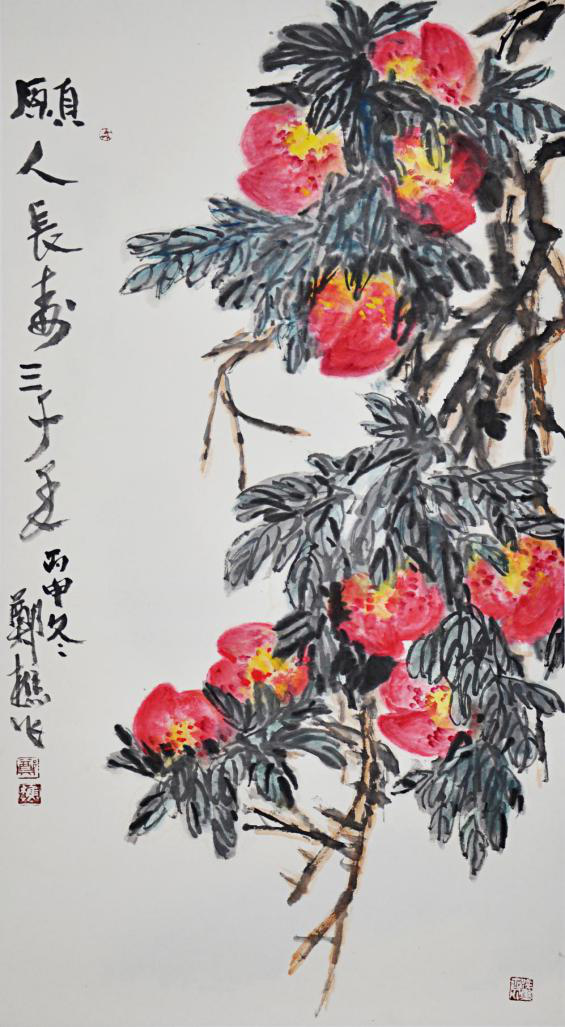 願人長壽三千年
丙申冬
鄭樵作